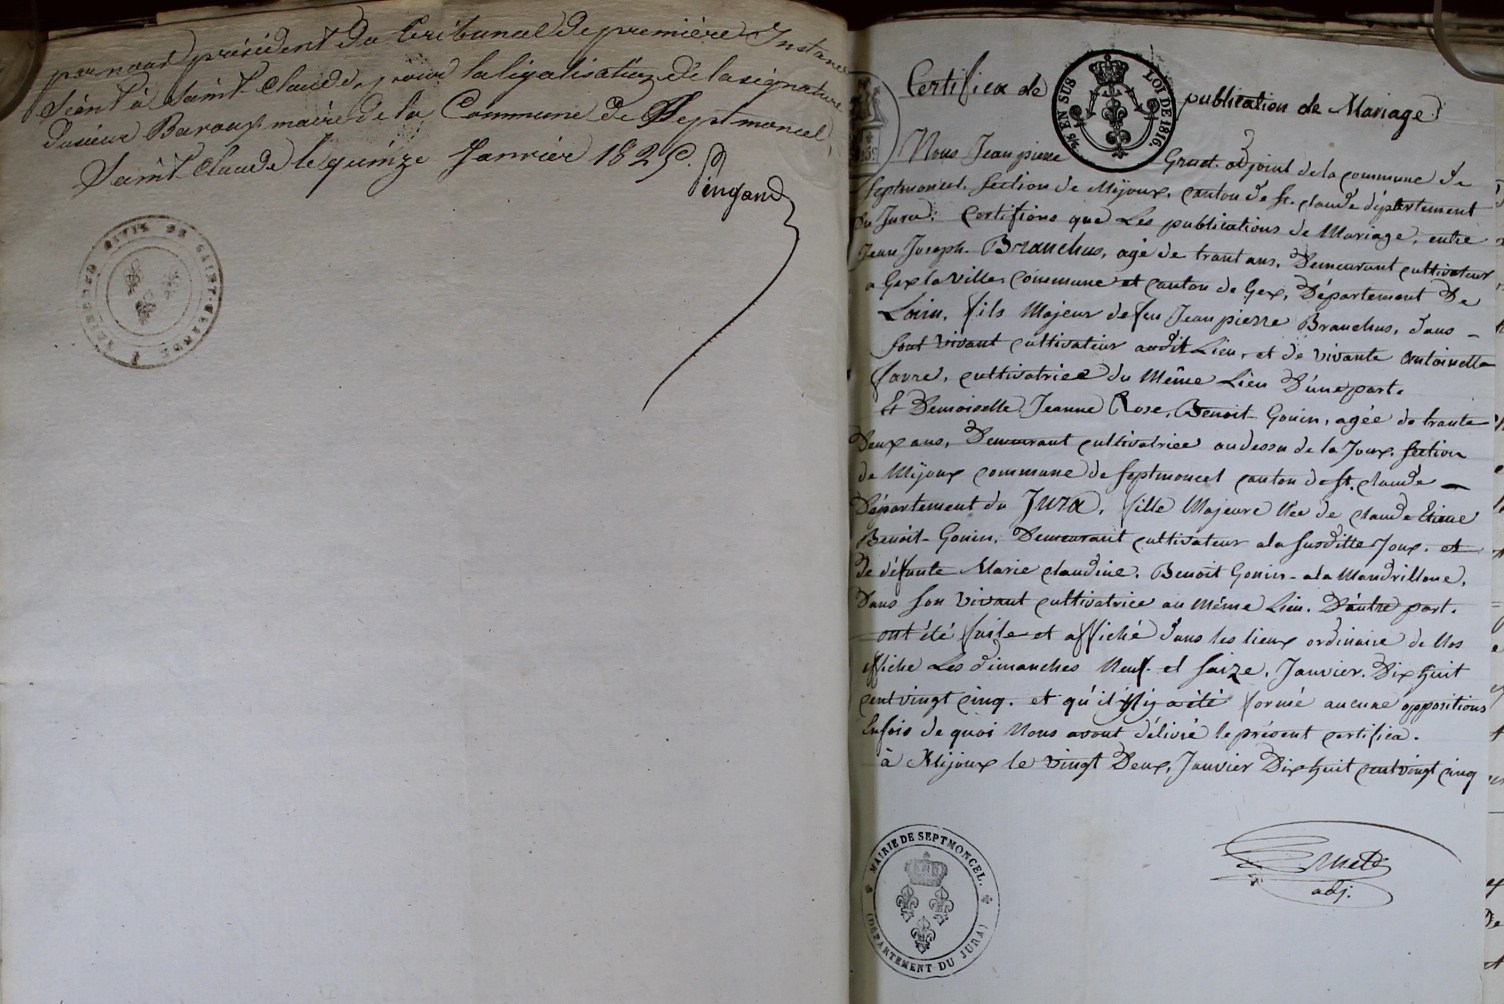 par nous président du Tribunal de première Instance
séant à Saint-Claude, pour la légalisation de la signature
du sieur Baroux maire de la Commune de Septmoncel,
Saint Claude le quinze Janvier 1825.
Certifica de publication de Mariage.
EN SUS LOI DE 1816.
Nous Jean pierre Gruet adjoint de la commune de
Septmoncel. Section de Mijoux, canton de St. claude département
du Jura: certifions que Les publications de Mariage, entre
Jean Joseph Branchus, agé de trant ans, Demeurant cultivateur
a Gex la ville, commune et canton de Gex, Département De
Loin, fils Majeur de feu Jean pierre Branchus, dans
sont vivant cultivateur audit Lieu, et de vivante Antoinette
favre, cultivatrice du Même Lieu D'une part.
Et Demoiselle Jeanne Rose, Benoit-Gonin, agée de trante
Deux ans, Demeurant cultivatrice au dessu de la Joux. Section
de Mijoux commune de Septmoncel canton de St. claude
Département du Jura, fille Majeure Née de claude Etiene
Benoit-Gonin, Demeurant cultivateur a la susditte Joux. et
de défunte Marie claudine. Benoit Gonin-a la Mandrillone,
Dans son vivant cultivatrice au Même Lieu. D'autre part.
ont été faite et affiché dans les lieux ordinaire de Nos
affiche Les dimanches Neuf et saize, Janvier. Dix huit
cent vingt cinq. et qu'il N'y a été formé aucune oppositions
Enfois de quoi Nous avont délivré le présent certifica.
à Mijoux le vingt Deux, Janvier Dix huit cent vingt cinq
adj.
MAIRIE DE SEPTMONCEL.
(DÉPARTEMENT DU JURA)